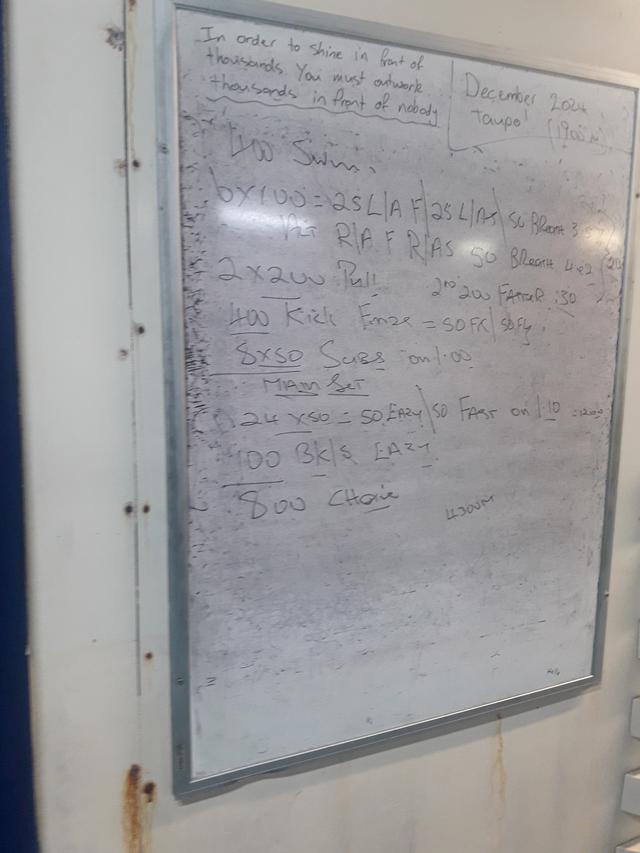 In order to shine in front of
thousands. You must outwork
thousands in front of nobody
December 2024
Taupo (1900m)
400 Swim.
6x100 = 25 L|A F|25 L|AS|50 BReath 3
R|A F R|AS 50 BReath 4
2x200 Pull 2nd 200 FASTER :30
400 Kick = 50 FK|50 Fly
8x50 Subs on 1:00
MAIN SET
24 x50 = 50 EAZY|50 FAST on 1:10 =1200
100 BK|S EAZY.
800 CHoice
4300M